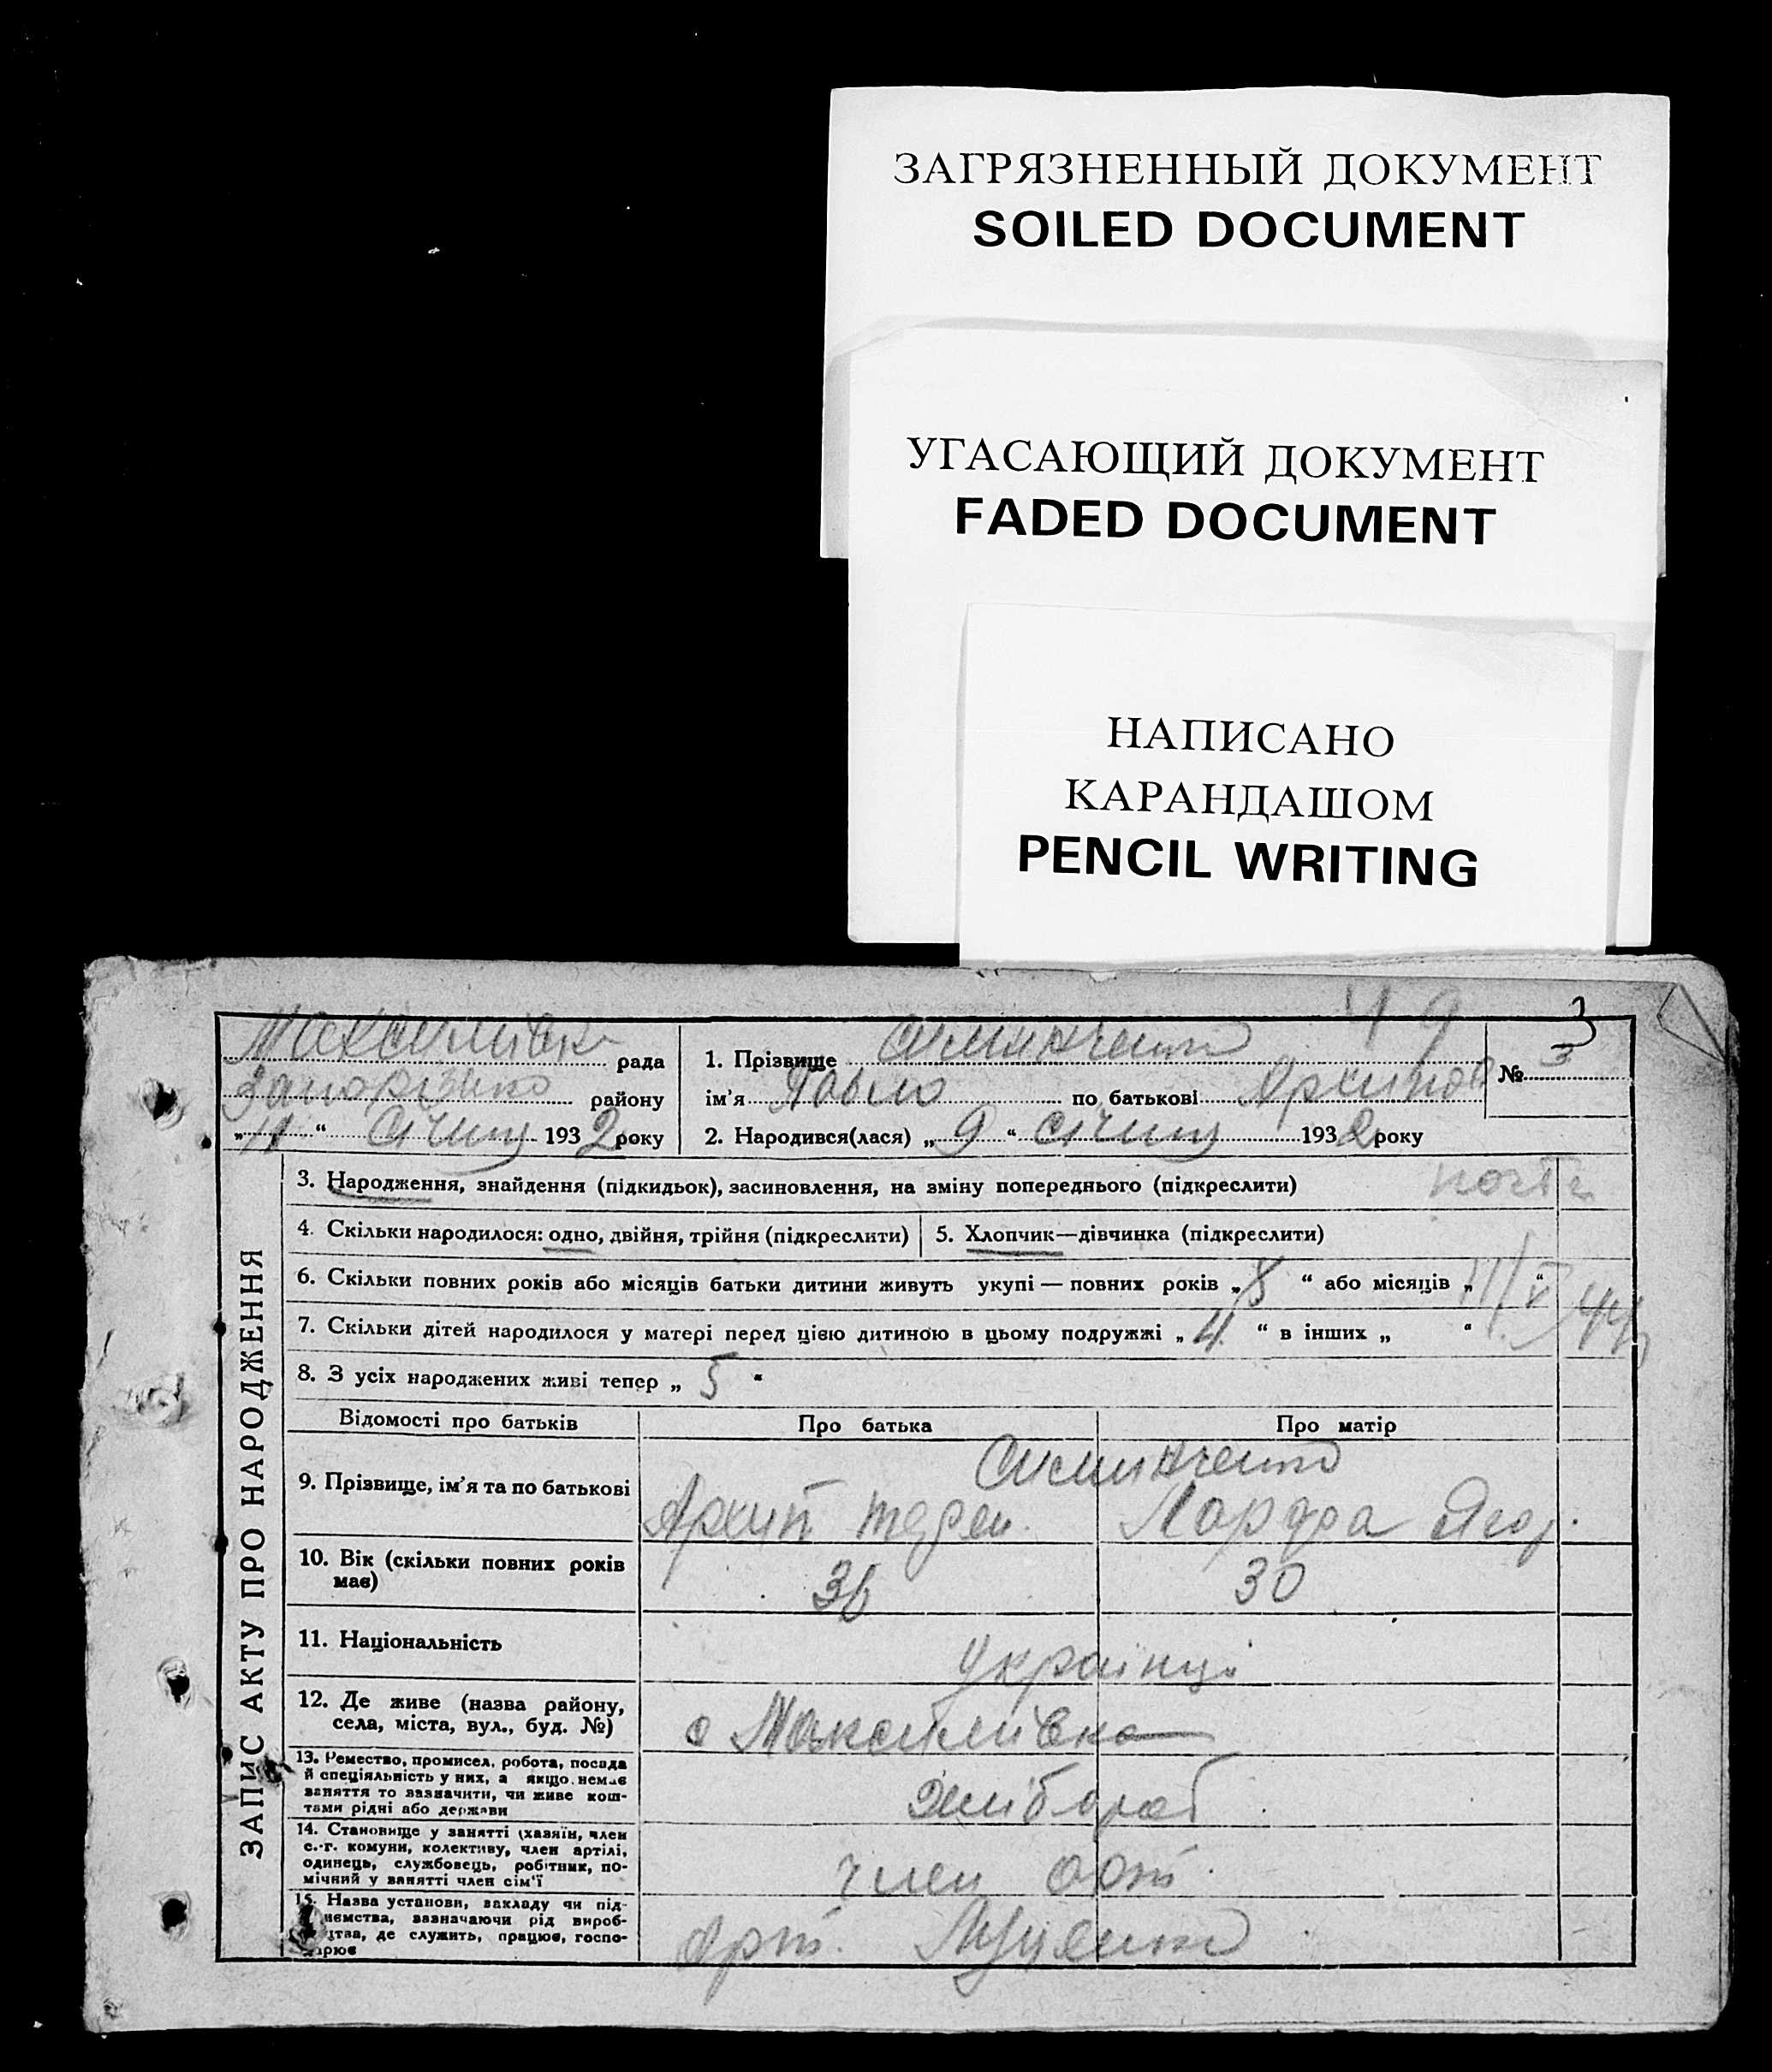 ЗАГРЯЗНЕННЫЙ ДОКУМЕНТ
SOILED DOCUMENT
УГАСАЮЩИЙ ДОКУМЕНТ
FADED DOCUMENT
НАПИСАНО
КАРАНДАШОМ
PENCIL WRITING
49
3
рада
1. Прізвище
№ 3
району
ім'я Павло по батькові Архипов
„11“ Січня 1932 року
2. Народився(лася) „9“ Січня 1932 року
ЗАПИС АКТУ ПРО НАРОДЖЕННЯ
3. Народження, знайдення (підкидьок), засиновлення, на зміну попереднього (підкреслити)
4. Скільки народилося: одно, двійня, трійня (підкреслити)
5. Хлопчик—дівчинка (підкреслити)
6. Скільки повних років або місяців батьки дитини живуть укупі — повних років „ “ або місяців „ “
7. Скільки дітей народилося у матері перед цією дитиною в цьому подружжі „4“ в інших „ “
8. З усіх народжених живі тепер „5“
Відомості про батьків
Про батька
Про матір
9. Прізвище, ім'я та по батькові
Архип
Ягор.
10. Вік (скільки повних років
має)
36
30
11. Національність
Українці
12. Де живе (назва району,
села, міста, вул., буд. №)
с Максимівка
13. Ремество, промисел, робота, посада
й спеціяльність у них, а якщо немає
заняття то зазначити, чи живе кош-
тами рідні або держави
Хлібороб
14. Становище у занятті (хазяїн, член
с.-г. комуни, колективу, член артілі,
одинець, службовець, робітник, по-
мічний у занятті член сім'ї
член арт.
15. Назва установи, закладу чи під-
иємства, зазначаючи рід вироб-
цтва, де служить, працює, госпо-
арює
Арт.